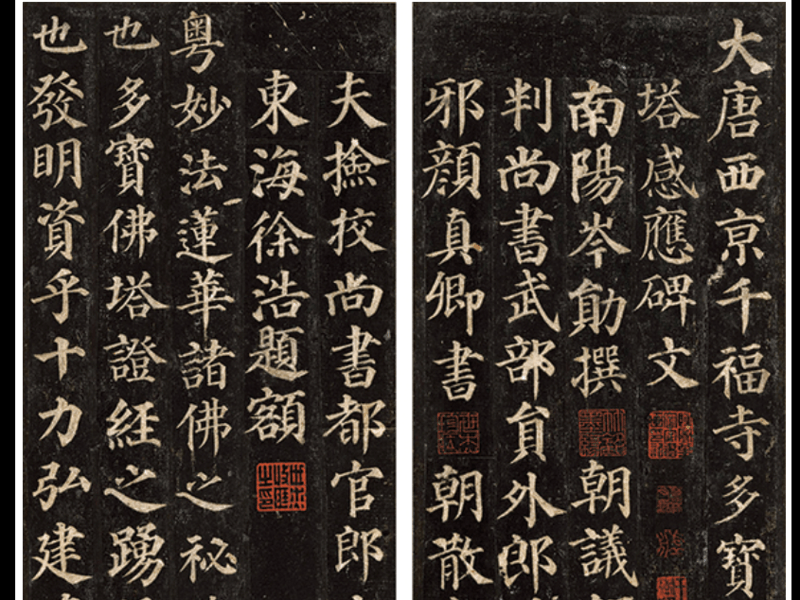 大唐西京千福寺多寶
塔感應碑文
南陽岑勛撰朝議
判尚書武部員外郎
邪顏真卿書朝散
夫撿挍尚書都官郎
東海徐浩題額
粤妙法蓮華諸佛之祕
也多寶佛塔證經之踴
也發明資乎十力弘建